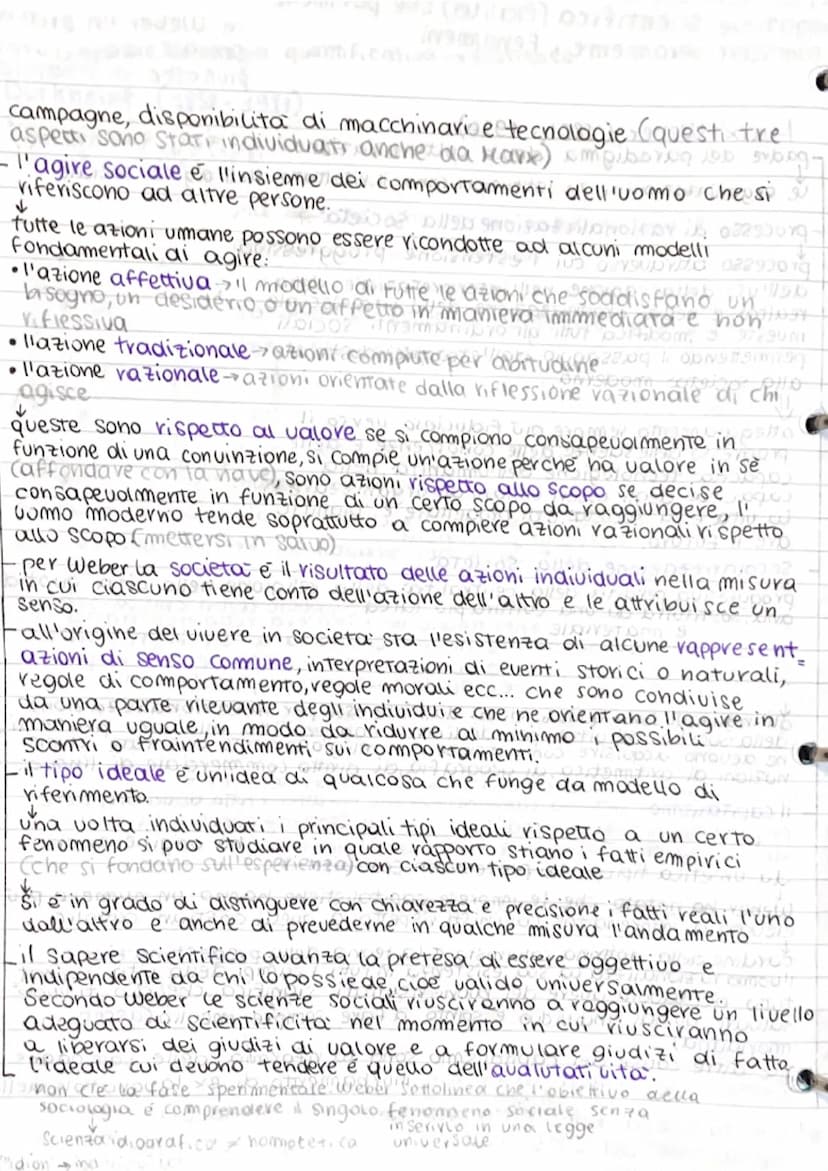 campagne, disponibilità di macchinari e tecnologie (questi tre
aspetti sono stati individuati anche da Marx)
- l'agire sociale è l'insieme dei comportamenti dell'uomo che si
riferiscono ad altre persone.
↓
tutte le azioni umane possono essere ricondotte ad alcuni modelli
fondamentali di agire:
• l'azione affettiva → il modello di tutte le azioni che soddisfano un
bisogno, un desiderio o un affetto in maniera immediata e non
riflessiva
• l'azione tradizionale → azioni compiute per abitudine
• l'azione razionale → azioni orientate dalla riflessione razionale di chi
agisce
↓
queste sono rispetto al valore se si compiono consapevolmente in
funzione di una convinzione, si compie un'azione perché ha valore in sé
(affondave con la nave), sono azioni rispetto allo scopo se decise
consapevolmente in funzione di un certo scopo da raggiungere, l'
uomo moderno tende soprattutto a compiere azioni razionali rispetto
allo scopo (mettersi in salvo)
- per Weber la società è il risultato delle azioni individuali nella misura
in cui ciascuno tiene conto dell'azione dell'altro e le attribuisce un
senso.
- all'origine del vivere in società sta l'esistenza di alcune rappresent=
azioni di senso comune, interpretazioni di eventi storici o naturali,
regole di comportamento, regole morali ecc... che sono condivise
da una parte rilevante degli individui e che ne orientano l'agire in
maniera uguale, in modo da ridurre al minimo i possibili
scontri o fraintendimenti sui comportamenti.
- il tipo ideale è un'idea di qualcosa che funge da modello di
riferimento.
↓
una volta individuati i principali tipi ideali rispetto a un certo
fenomeno si può studiare in quale rapporto stiano i fatti empirici
(che si fondano sull'esperienza) con ciascun tipo ideale
↓
si è in grado di distinguere con chiarezza e precisione i fatti reali l'uno
dall'altro e anche di prevederne in qualche misura l'andamento
- il sapere scientifico avanza la pretesa di essere oggettivo e
indipendente da chi lo possiede, cioè valido universalmente.
Secondo Weber le scienze sociali riusciranno a raggiungere un livello
adeguato di scientificità nel momento in cui riusciranno
a liberarsi dei giudizi di valore e a formulare giudizi di fatto
l'ideale cui devono tendere è quello dell'avalutatività.
non c'è la fase sperimentale Weber sottolinea che l'obiettivo della
sociologia è comprendere il singolo fenomeno sociale senza
inserirlo in una legge
universale
↓
scienza idiografica ≠ nomotetica